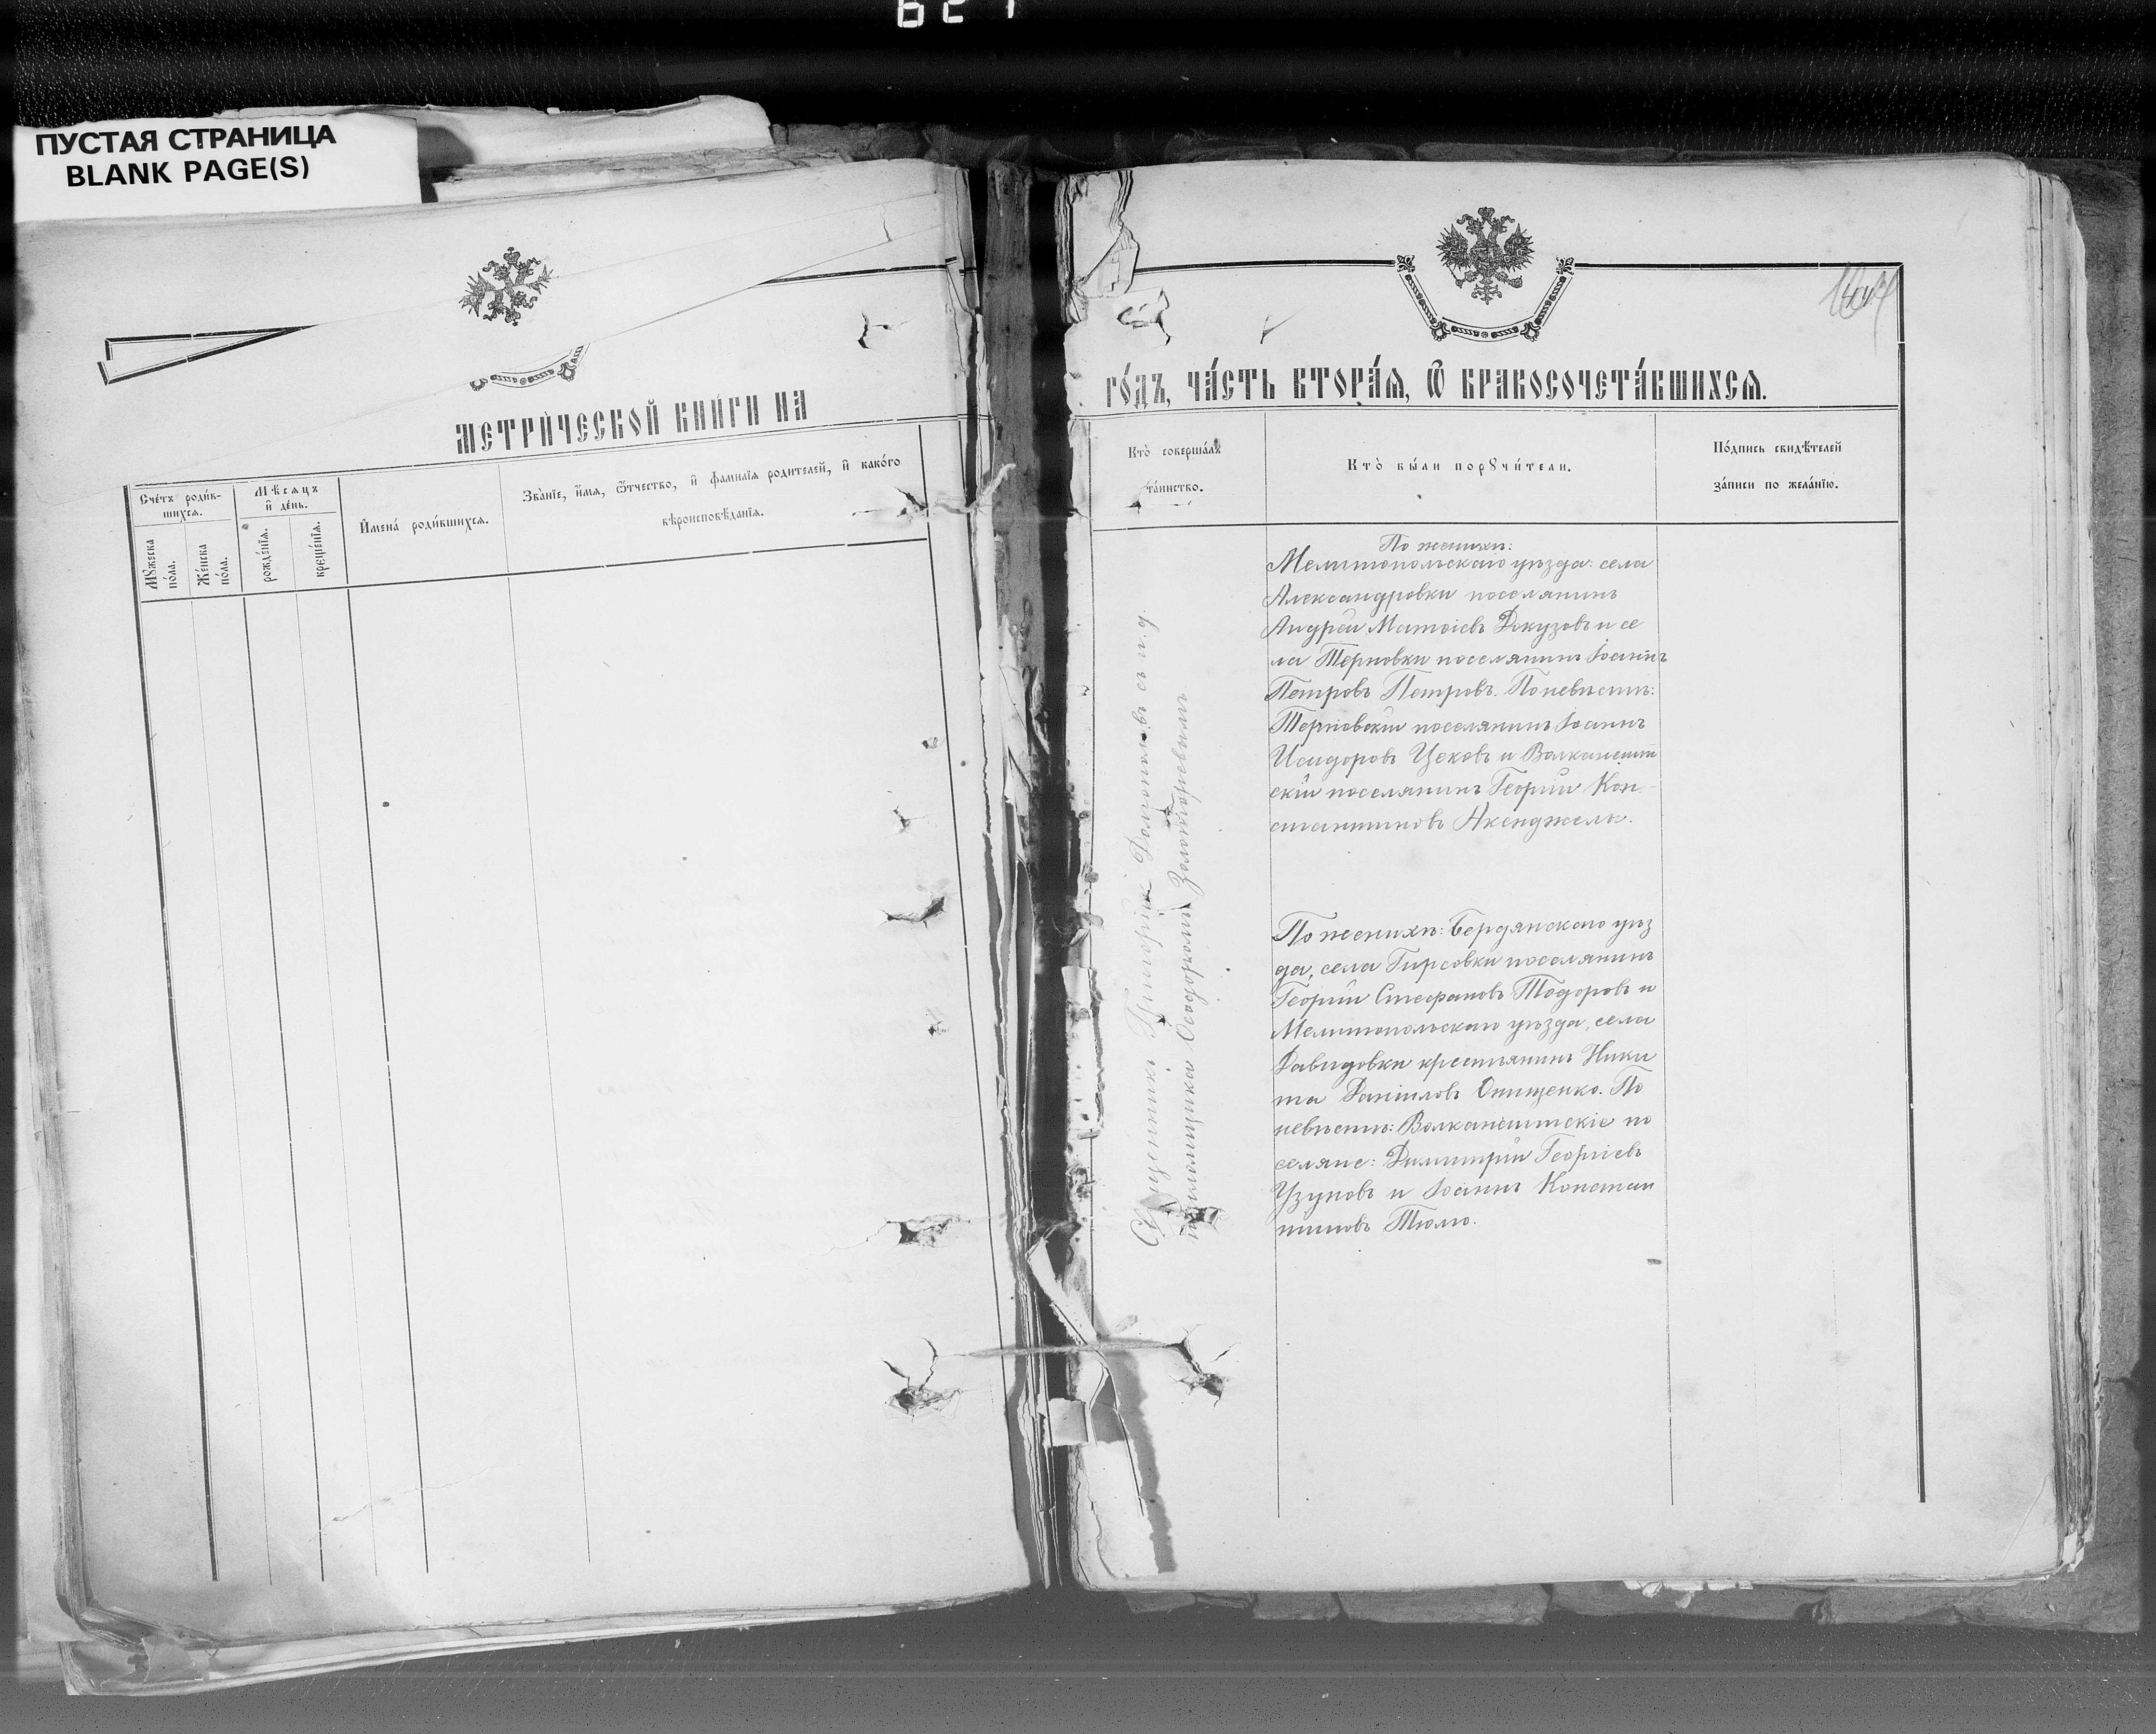 ПУСТАЯ СТРАНИЦА
BLANK PAGE(S)
МЕТРИ́ЧЕСКОЙ КНИ́ГИ НА
Сче́тъ роди́в-
шихсѧ.
Мꙋжеска
по́ла.
Же́нска
по́ла.
Мѣ́сяцъ
и҆ де́нь.
рожде́нїѧ.
креще́нїѧ.
И҆мена́ роди́вшихсѧ.
Зва́нїе, и҆́мѧ, ѻ҆́тчество, и҆ фами́лїѧ родителей, и҆ како́го
вѣроисповѣ́данїѧ.
ГО́ДЪ, ЧА́СТЬ ВТОРА́Ѧ, Ѽ БРАКОСОЧЕТА́ВШИХСѦ.
Кто̀ соверша́лъ
та́инство.
Кто̀ бы́ли порꙋчи́тели.
По́дпись свидѣ́телей
за́писи по жела́нїю.
Священникъ Григорій съ и. д.
псаломщика Ѳеодоромъ
По женихѣ:
Мелитопольскаго уѣзда: села
Александровки поселянинъ
Андрей Матвіевъ Докузовъ и се
ла Терновки поселянинъ Іоаннъ
Петровъ Петровъ. По невѣстѣ:
Терновскій поселянинъ Іоаннъ
Исидоровъ Цековъ и Волканешт
скій поселянинъ Георгій Кон-
стантиновъ Акенджели.
По женихѣ: Бердянскаго уѣз
да, села Гирсовки поселянинъ
Георгій Стефановъ Тодоровъ и
Мелитопольскаго уѣзда, села
Давидовки крестьянинъ Ники
та Даніиловъ Онищенко. По
невѣстѣ: Волканештскіе по
селяне: Димитрій Георгіевъ
Узуновъ и Іоаннъ Констан
тиновъ Тюлю.